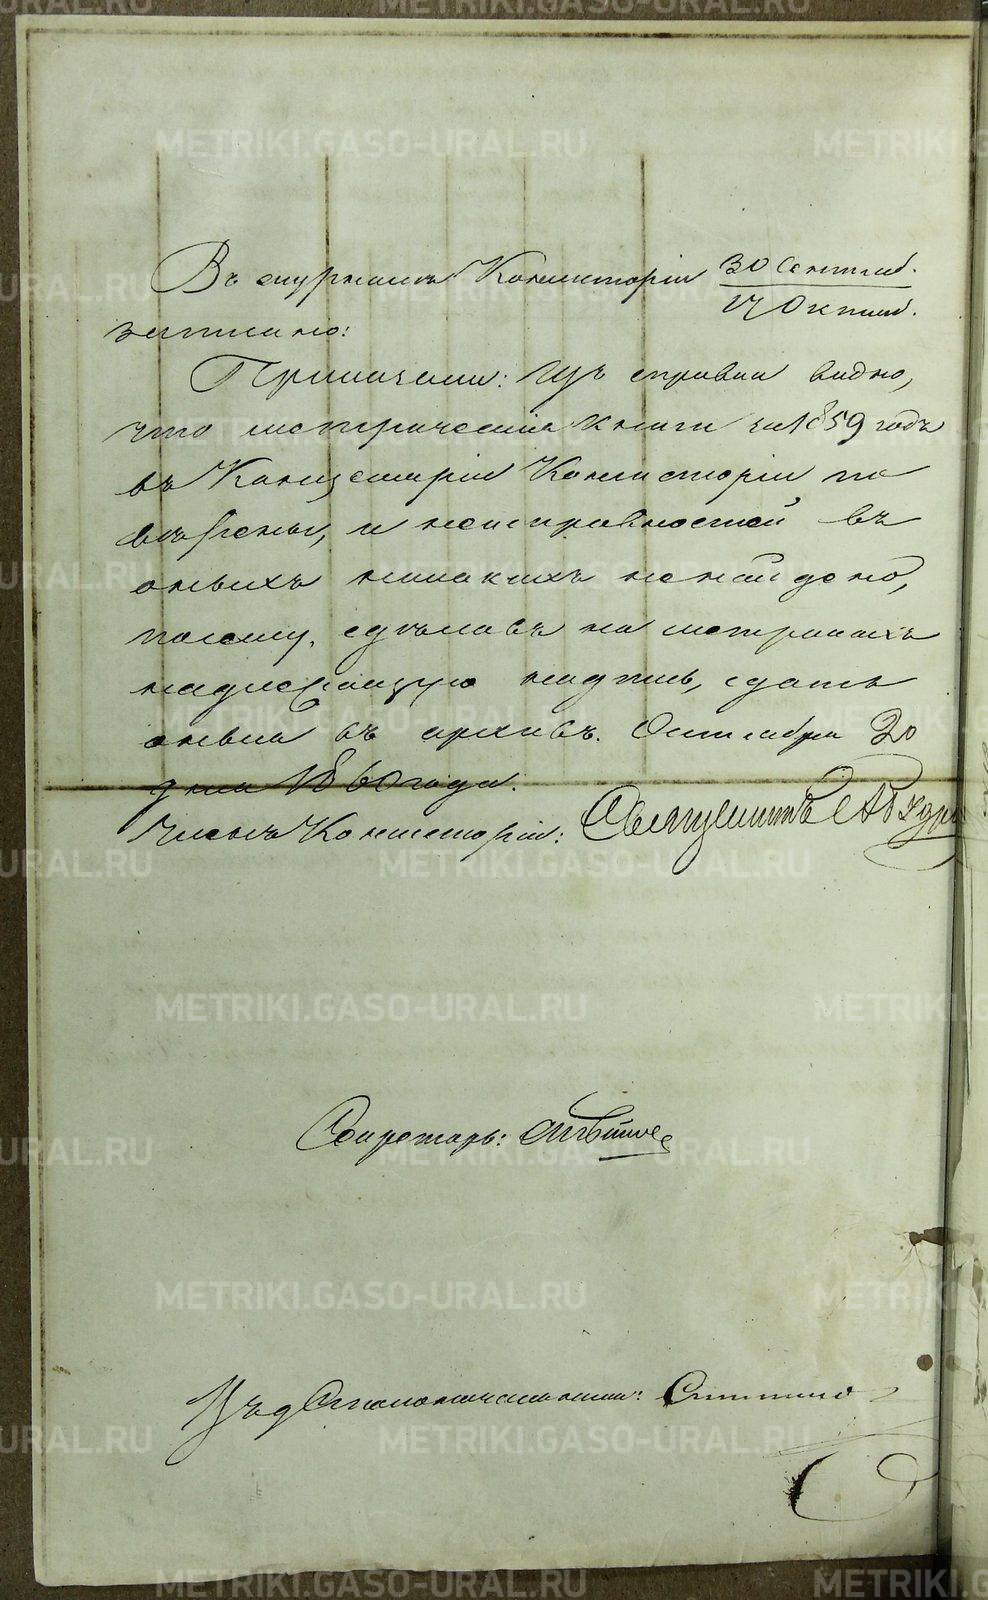 Въ журналѣ Консисторіи 30 Сентяб.
17 Октяб.
записано:
Приказали: Изъ справки видно,
что метрическія книги за 1859 годъ
въ Канцеляріи Консисторіи по
вѣрены, и неисправностей въ
оныхъ никакихъ ненайдено,
посему, сдѣлавъ на метрикахъ
надлежащую надпись, сдать
оныя въ архивъ. Октября 20
дня 1860 года.
Членъ Консисторіи: Священникъ
Секретарь:
Столоначальника:
METRIKI.GASO-URAL.RU